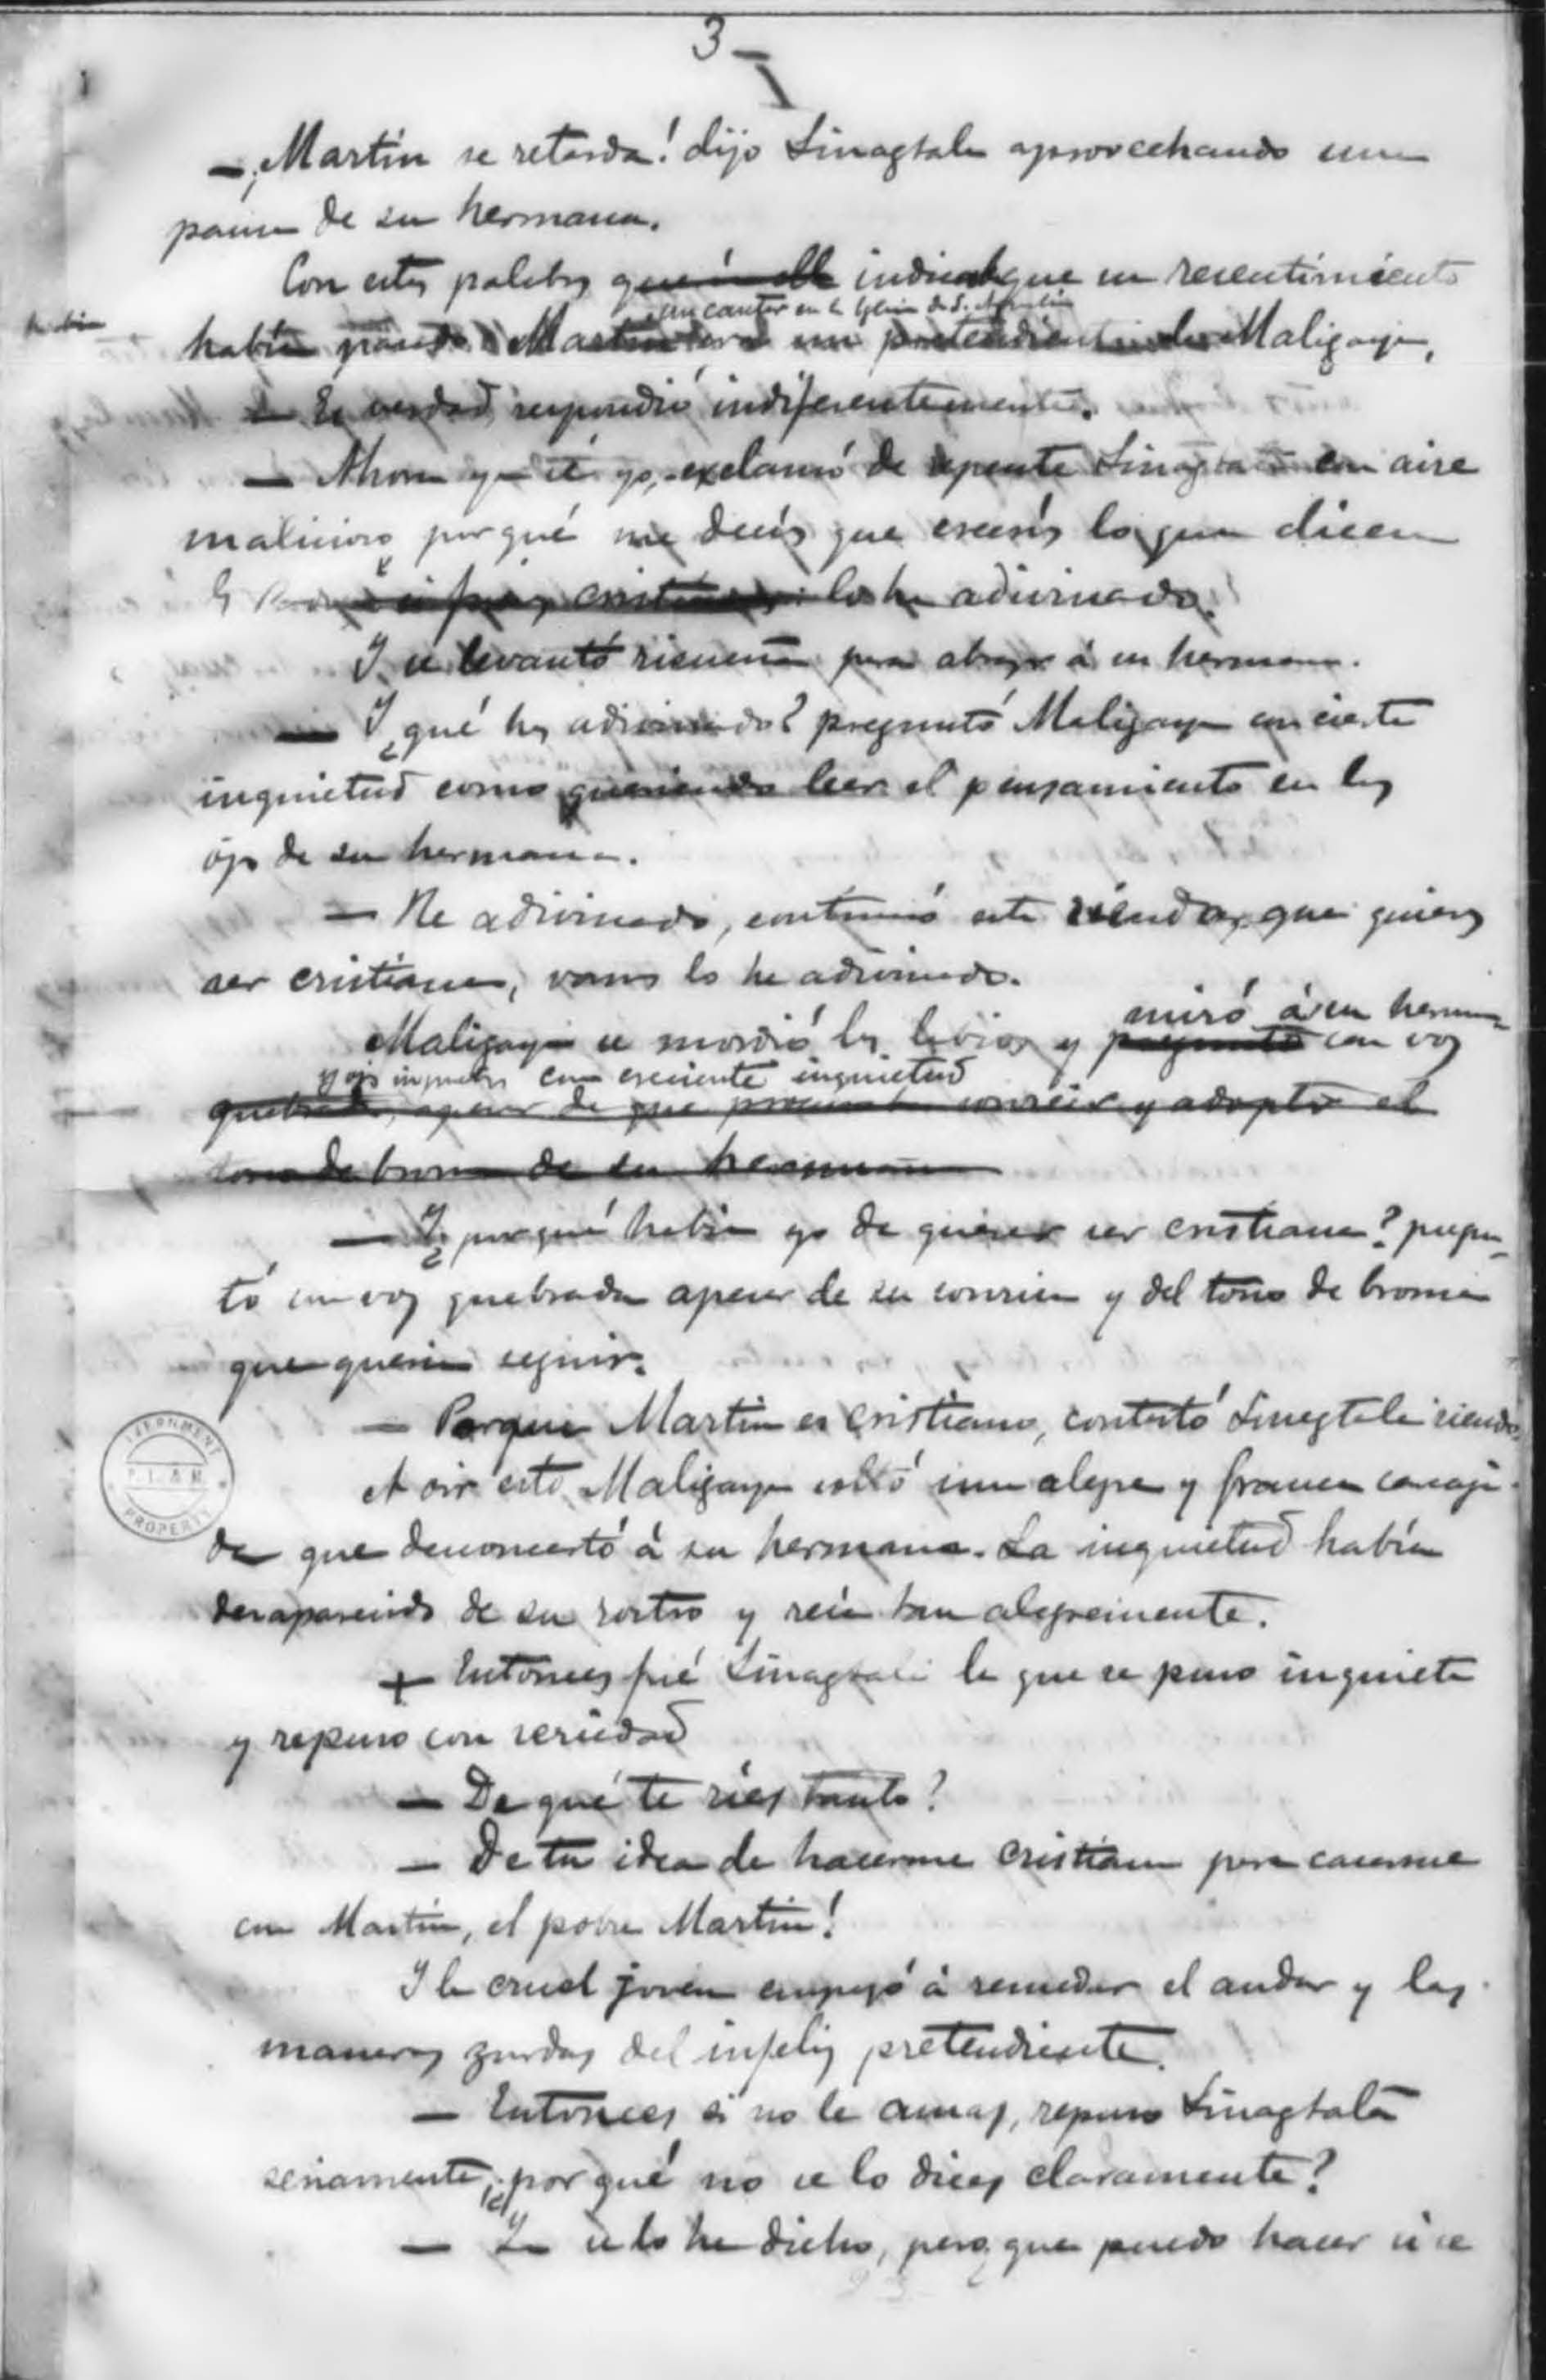 3
— ¡Martin se retarda! dijo Sinagtala aprovechando una
pausa de su hermana.
Con estas palabras indicaba que su resentimiento
un cantor en la Iglesia de S. Agustin
había pasado. Martin era un pretendiente de Maligaya,
— Es verdad, respondió indiferentemente.
— Ahora ya sé yo, exclamó de repente Sinagtala con aire
malicioso, por qué me decís que creeis lo que dicen
lo he adivinado!
Y se levantó risueña para abrazar á su hermana.
— Y ¿qué has adivinado? preguntó Maligaya con cierta
inquietud como queriendo leer el pensamiento en los
ojos de su hermana.
— He adivinado, continuó esta riendo, que quieres
ser cristiana, vamos lo he adivinado.
miró á su hermana
Maligaya se mordió los labios y preguntó con voz
y ojos inquietos con creciente inquietud
quebrada, apesar de que procuraba sonreir y adoptar el
tono de broma de su hermana
— Y ¿por qué habia yo de querer ser cristiana? pregun-
tó con voz quebrada apesar de su sonrisa y del tono de broma
que queria seguir.
— Porque Martin es cristiano, contestó Sinagtala riendo.
Al oir esto Maligaya soltó una alegre y franca carcaja-
da que desconcertó á su hermana. La inquietud habia
desaparecido de su rostro y reía tan alegremente.
+ Entonces fué Sinagtala la que se puso inquieta
y repuso con seriedad
— De qué te ries tanto?
— De tu idea de hacerme cristiana para casarme
con Martin, el pobre Martin!
Y la cruel joven empezó á remedar el andar y las
maneras zurdas del infeliz pretendiente.
— Entonces si no le amas, repuso Sinagtala
seriamente, ¿por qué no se lo dices claramente?
— Ya se lo he dicho, pero que puedo hacer si se
GOVERNMENT
P.L. & M.
PROPERTY